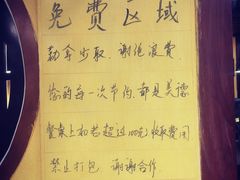 免费区域
勤拿少取，谢绝浪费。
您的每一次节约，都是美德
餐桌上和若超过100元收取费用
禁止打包 谢谢合作